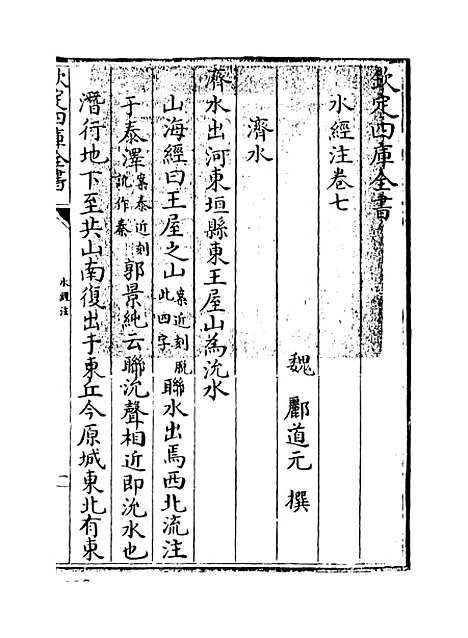 欽定四庫全書
水經注卷七
魏 酈道元 撰
濟水
濟水出河東垣縣東王屋山為沇水
山海經曰王屋之山案近刻脱此四字聯水出焉西北流注
于泰澤案泰近刻訛作秦郭景純云聯沇聲相近即沇水也
潛行地下至共山南復出于東丘今原城東北有東
欽定四庫全書
水經注
一